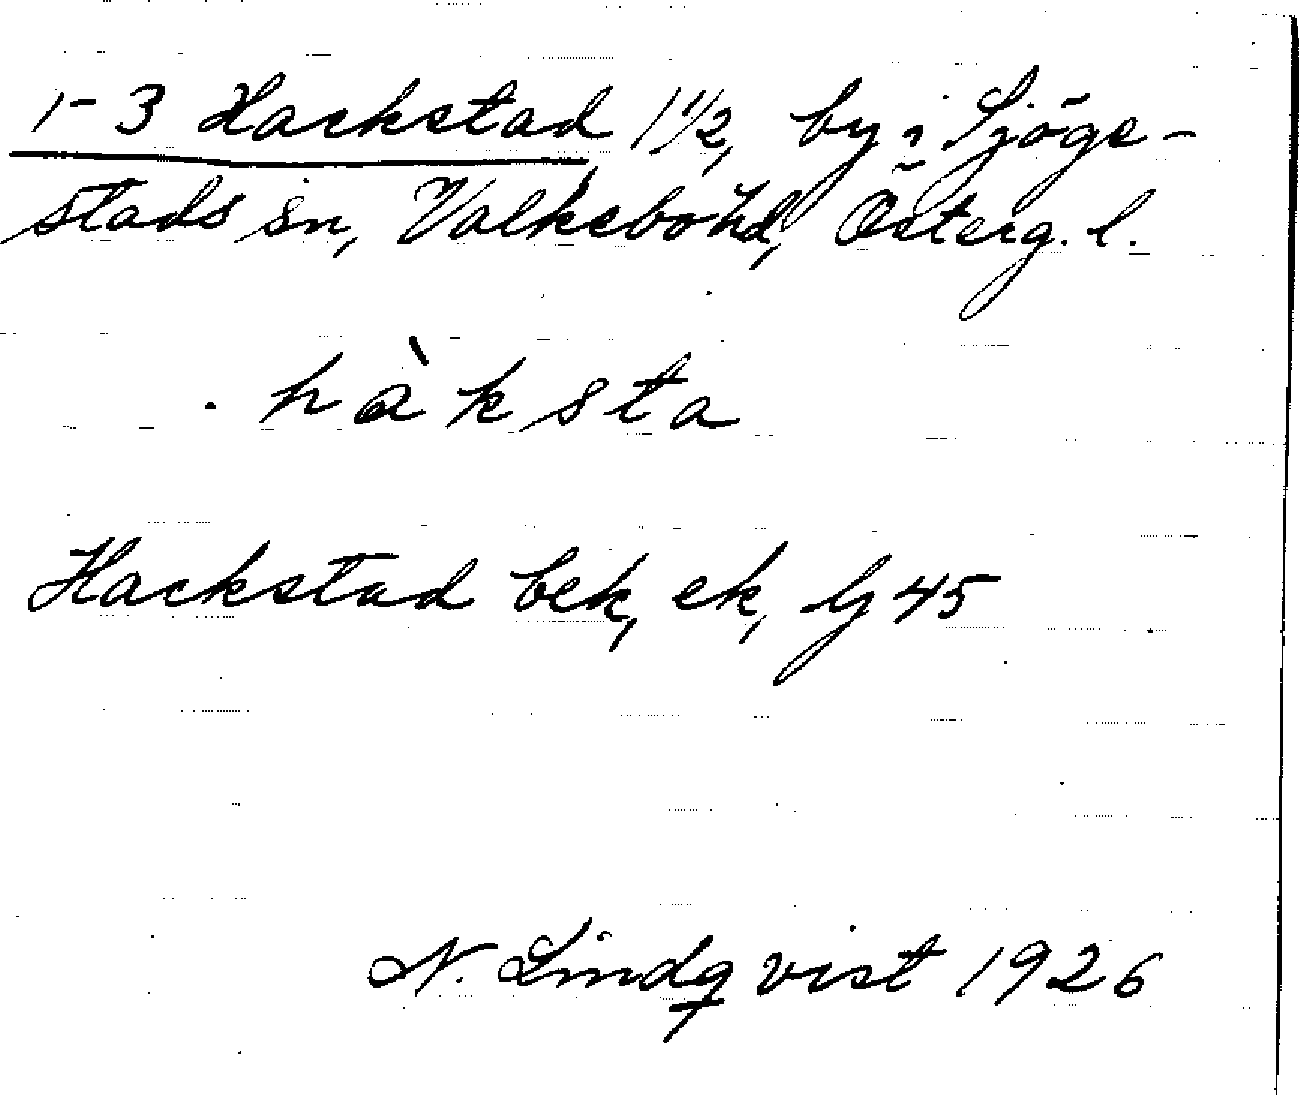 1-3 Hackstad 1 1/2, by i Sjöge-
stads sn, Valkebo hd, Österg. l.
hàksta
Hackstad bek, ek, Lj 45
N. Lindqvist 1926